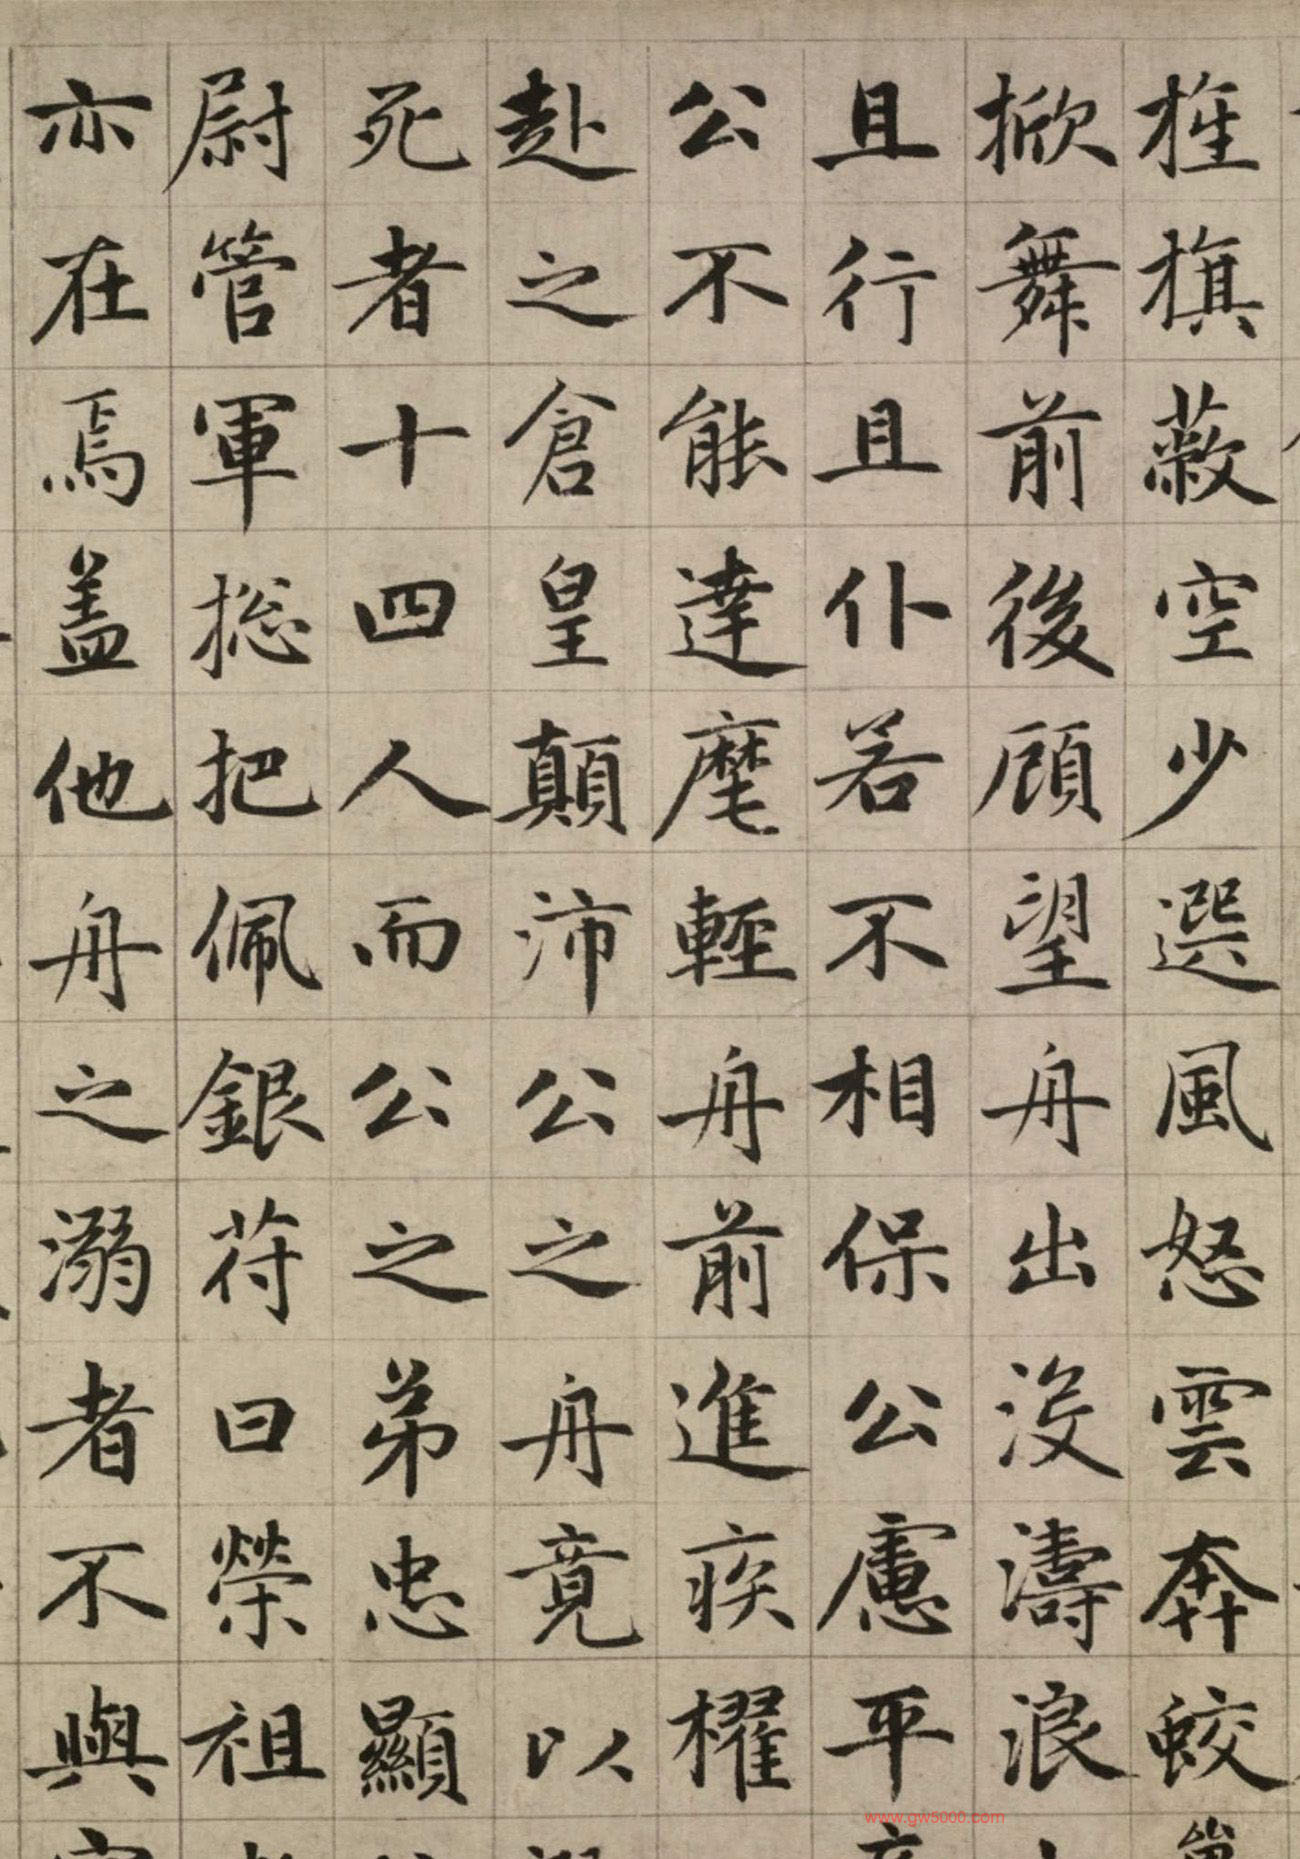 旌旗蔽空少選風怒雲奔蛟
掀舞前後顧望舟出没濤浪
且行且仆若不相保公慮平
公不能達麾輕舟前進疾櫂
赴之倉皇顛沛公之舟竟以
死者十四人而公之弟忠顯
尉管軍総把佩銀符曰榮祖
亦在焉盖他舟之溺者不與
www.gw5000.com